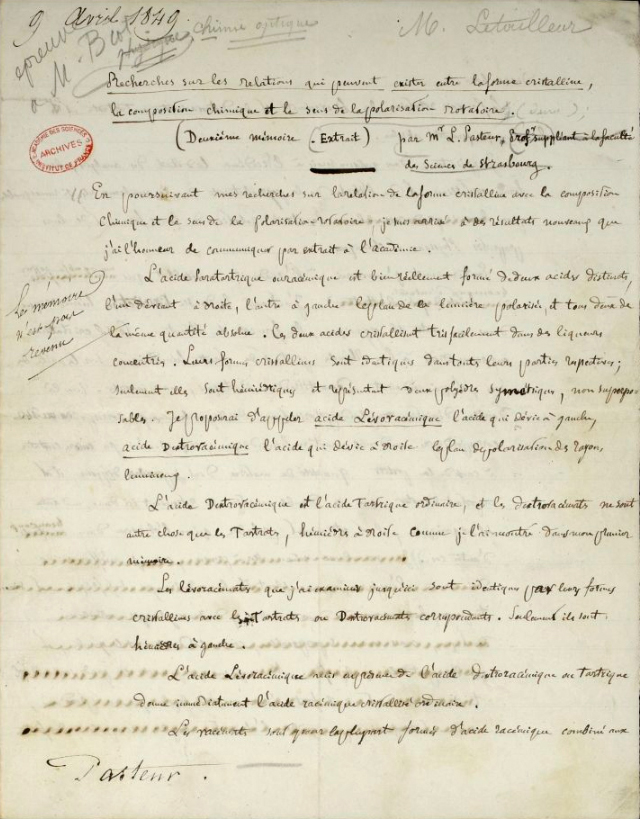 9 Avril 1849
épreuve
à M. Biot
Physique
Chimie optique
M. Letoilleur
Recherches sur les relations qui peuvent exister entre la forme cristalline,
la composition chimique et le sens de la polarisation rotatoire.
(Deuxième mémoire. Extrait) par Mr L. Pasteur, Profr suppléant à la faculté
des Sciences de Strasbourg.
ACADÉMIE DES SCIENCES
ARCHIVES
INSTITUT DE FRANCE
En poursuivant mes recherches sur la relation de la forme cristalline avec la composition
chimique et le sens de la Polarisation rotatoire, je suis arrivé à des résultats nouveaux que
j'ai l'honneur de communiquer par extrait à l'académie.
L'acide Paratartrique ou racémique est bien réellement formé de deux acides distincts,
l'un déviant à droite, l'autre à gauche le plan de la lumière polarisée, et tous deux de
la même quantité absolue. Ces deux acides cristallisent très facilement dans des liqueurs
concentrées. Leurs formes cristallines sont identiques dans toutes leurs parties respectives;
seulement elles sont hémiédriques et représentent deux polyèdres symétriques, non superpo-
sables. Je proposerai d'appeler acide Lévoracémique l'acide qui dévie à gauche,
acide Dextroracémique l'acide qui dévie à droite le plan de polarisation des rayons
lumineux.
Le mémoire
n'est pas
revenu
L'acide Dextroracémique est l'acide Tartrique ordinaire, et les dextroracémates ne sont
autre chose que les Tartrates, hémièdres à droite comme je l'ai montré dans mon premier
mémoire.
Les lévoracémates que j'ai examinés jusqu'ici sont identiques par leurs formes
cristallines avec les tartrates ou Dextroracémates correspondants. Seulement ils sont
hémièdres à gauche.
L'acide Lévoracémique mis en présence de l'acide dextroracémique ou Tartrique
donne immédiatement l'acide racémique cristallisé ordinaire.
Les racémates sont pour la plupart formés d'acide racémique combiné aux
Pasteur.